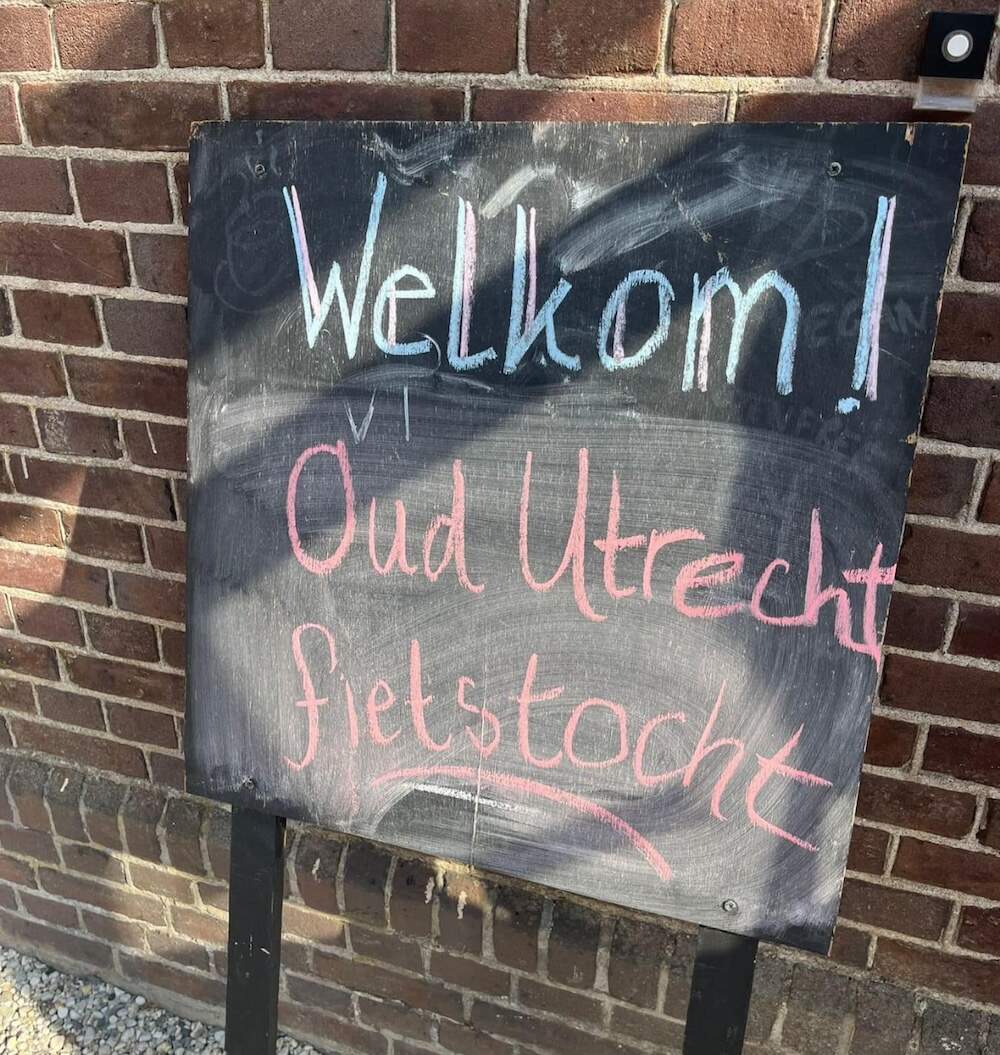 Welkom!
Oud Utrecht
fietstocht